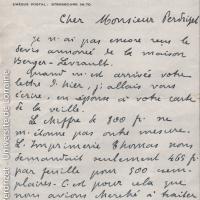 CHÈQUE POSTAL : STRASBOURG 24.70
Cher Monsieur Perdrizet
Je n'ai pas encore reçu le
devis annoncé de la maison
Berger-Levrault.
Quand m'est arrivée votre
lettre d'hier, j'allais vous
écrire, en réponse à votre carte
de la veille.
Le chiffre de 800 fr. ne
m'étonne pas outre mesure.
L'Imprimerie Thomas nous
demandait seulement 465 fr.
par feuille pour 500 exem-
plaires. C'est pour cela que
nous avions cherché à traiter
Université de Lorraine